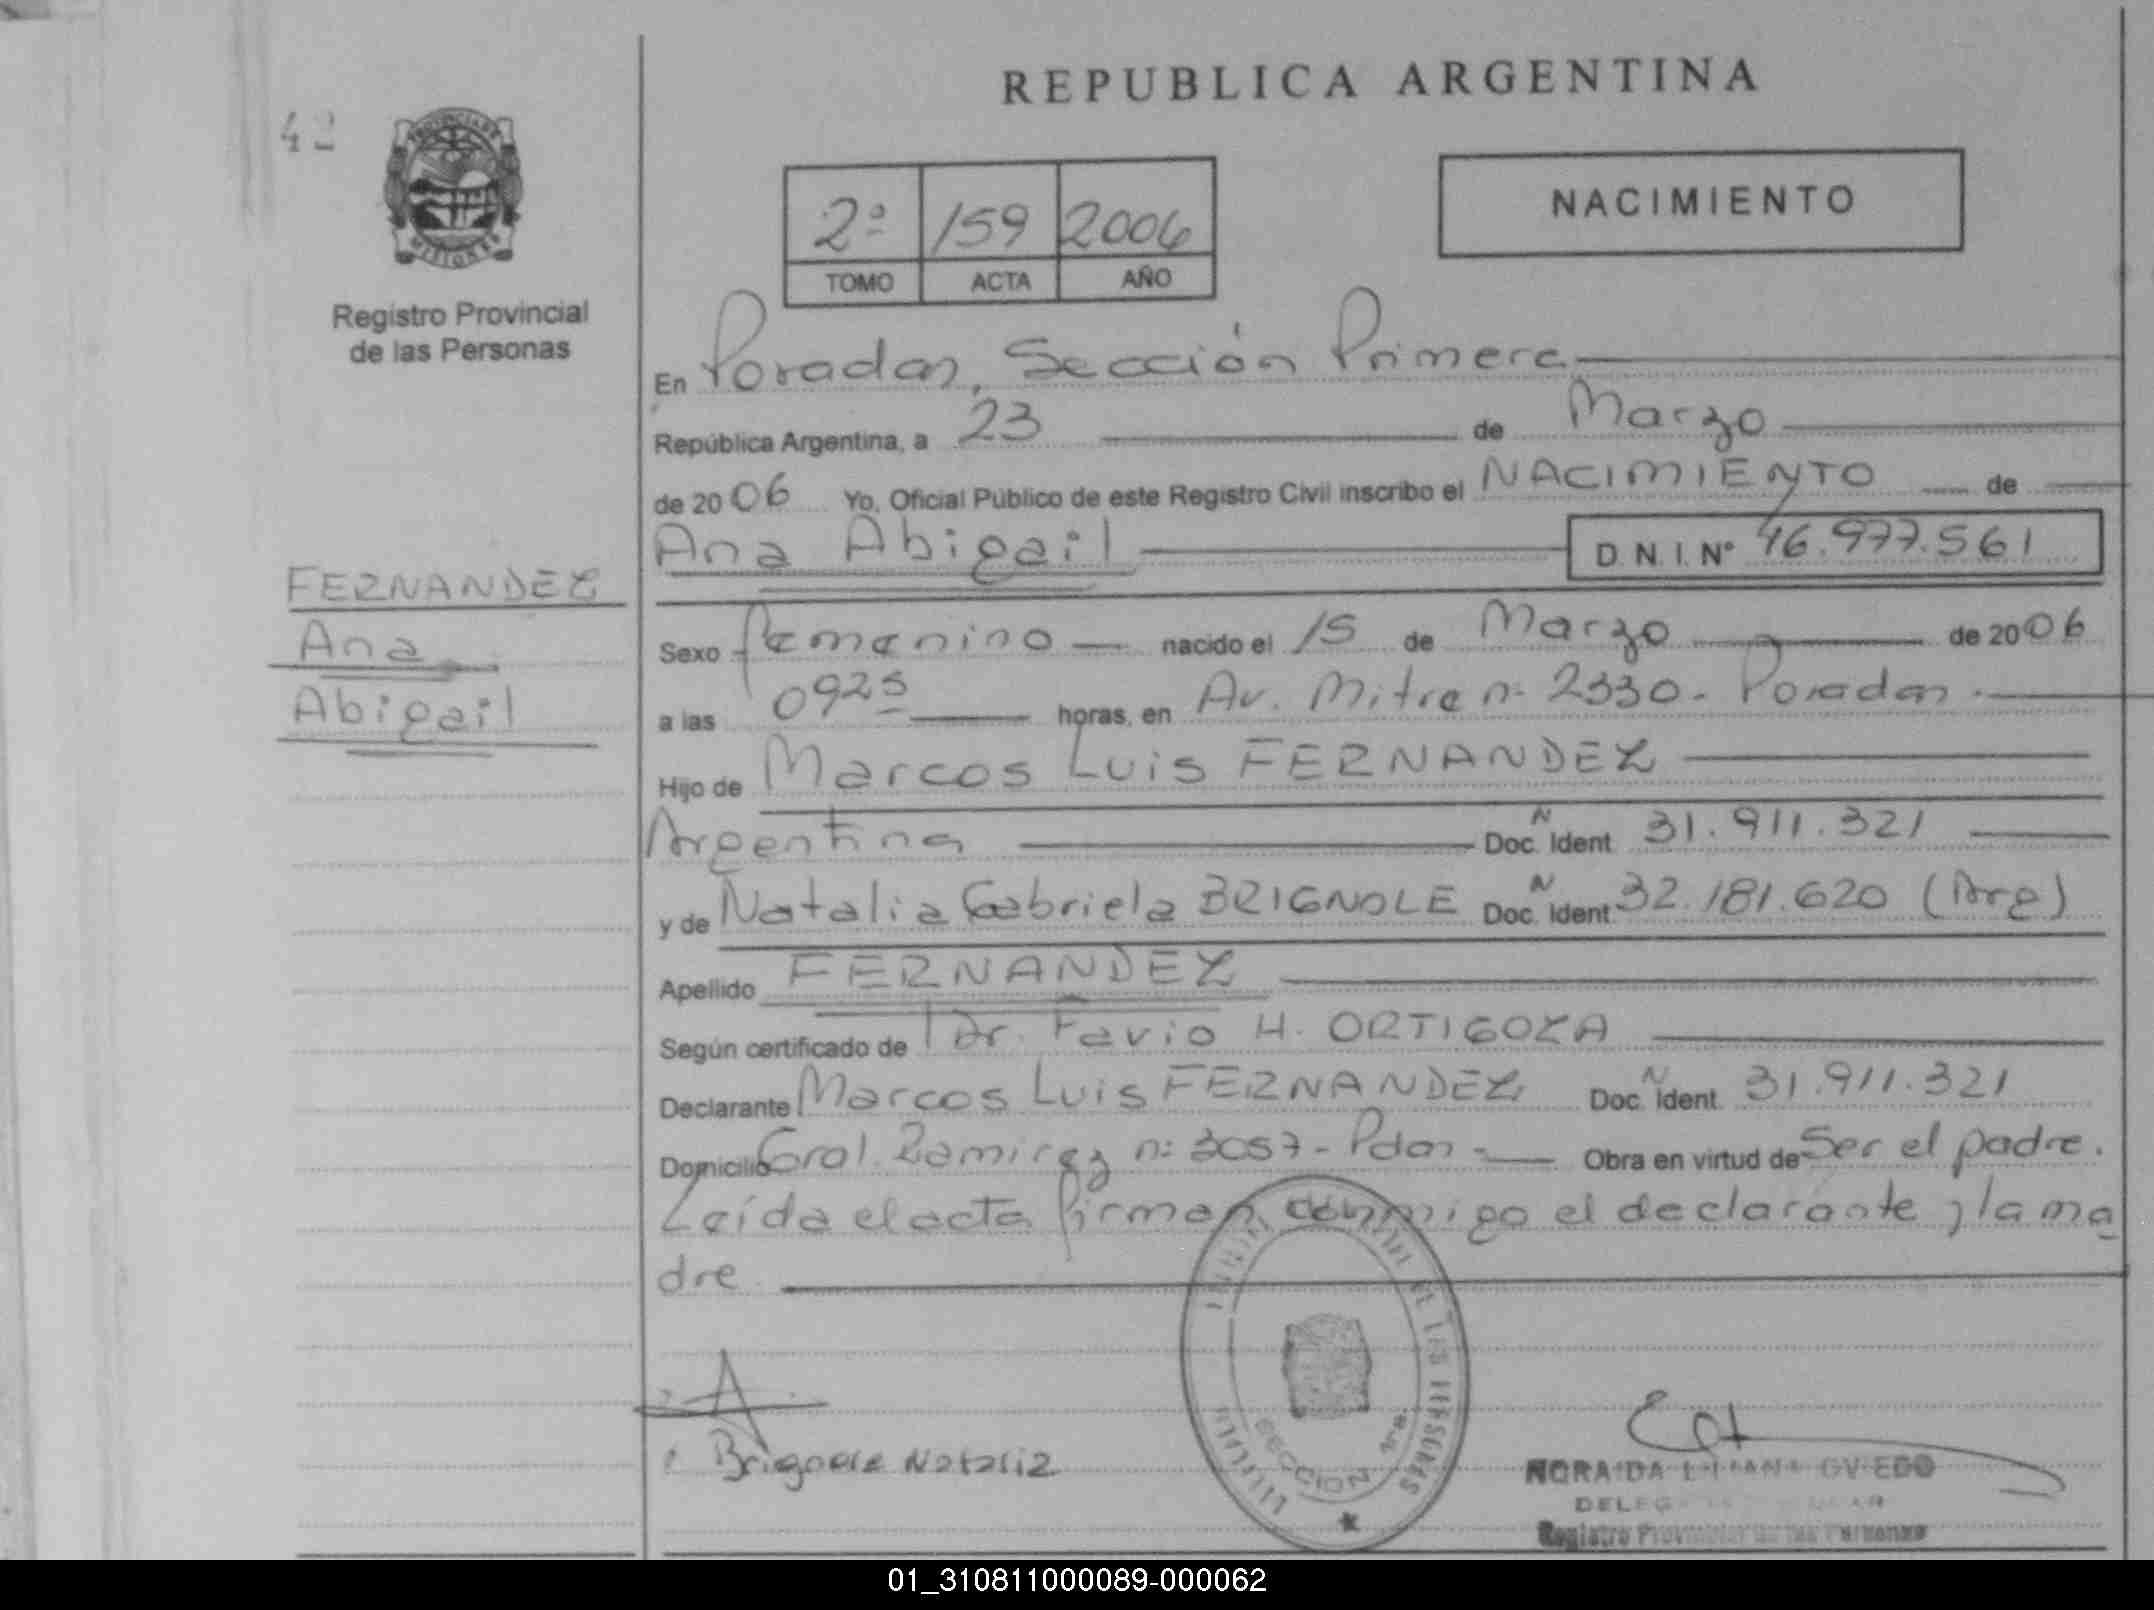 REPUBLICA ARGENTINA
42
PROVINCIA DE
MISIONES
Registro Provincial
de las Personas
2º 159 2006
TOMO ACTA AÑO
NACIMIENTO
En Posadas, Sección Primera
República Argentina, a 23 de Marzo
de 2006 Yo, Oficial Público de este Registro Civil inscribo el NACIMIENTO de
Ana Abigail D.N.I. Nº 46.977.561
FERNANDEZ
Ana
Abigail
Sexo femenino nacido el 15 de Marzo de 2006
a las 0925 horas, en Av. Mitre nº 2330 - Posadas.
Hijo de Marcos Luis FERNANDEZ
Argentina Doc. N Ident. 31.911.321
y de Natalia Gabriela BRIGNOLE Doc. N Ident. 32.181.620 (Arg)
Apellido FERNANDEZ
Según certificado de Dr. Favio H. ORTIGOZA
Declarante Marcos Luis FERNANDEZ Doc. N Ident. 31.911.321
Domicilio Gral. Ramirez nº 3057 - Pdas - Obra en virtud de Ser el padre.
Leída el acta firman conmigo el declarante y la ma
dre
Brignole Natalia
SECCION 1ra.
NORAIDA LILIANA OVIEDO
Registro Provincial de las Personas
01_310811000089-000062